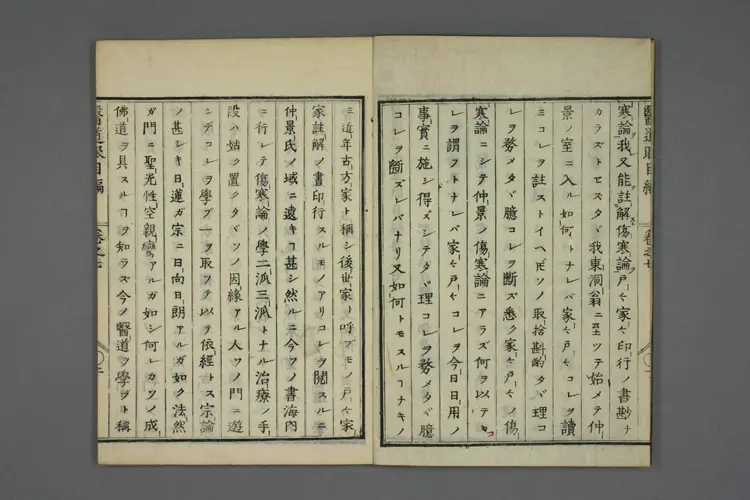 醫道眼目編 卷之七
寒論我又能註解傷寒論戸々家々印行ノ書尠ナ
カラズトセズタヾ我東洞翁ニ至ツテ始メテ仲
景ノ室ニ入ル如何トナレバ家々戸々コレヲ讀
ミコレヲ註ストイヘ𪜈ソノ取捨斟酌タヾ理コ
レヲ務メタヾ臆コレヲ断ズ悉ク家々戸々ノ傷
寒論ニシテ仲景ノ傷寒論ニアラズ何ヲ以テコ
レヲ謂フトナレバ家々戸々コレヲ今日日用ノ
事實ニ施シ得ズシテタヾ理コレヲ務メタヾ臆
コレヲ断ズレバナリ又如何トモスルヿナキノ
ミ近年古方家ト稱シ後世家ト呼ブモノ戸々家
家註解ノ書印行スルモノアリコレヲ閲スルニ
仲景氏ノ域ニ遠キヿ甚シ然ルニ今ソノ書海內
ニ行レテ傷寒論ノ學二派三派トナル治療ノ手
段ハ姑ク置クタバソノ因緣アル人ソノ門ニ遊
ンデコレヲ學ブヿヲ取ツテ以テ依經トス宗論
ノ甚シキ日蓮ガ宗ニ日向日朗アルガ如ク法然
ガ門ニ聖光性空親鸞アルガ如シ何レカソノ成
佛道ヲ具スルヿヲ知ラズ今ノ醫道ヲ學ブト稱
醫道眼目編 卷之七